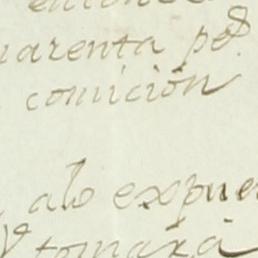 arenta ps.
comición
alo expue
tomará